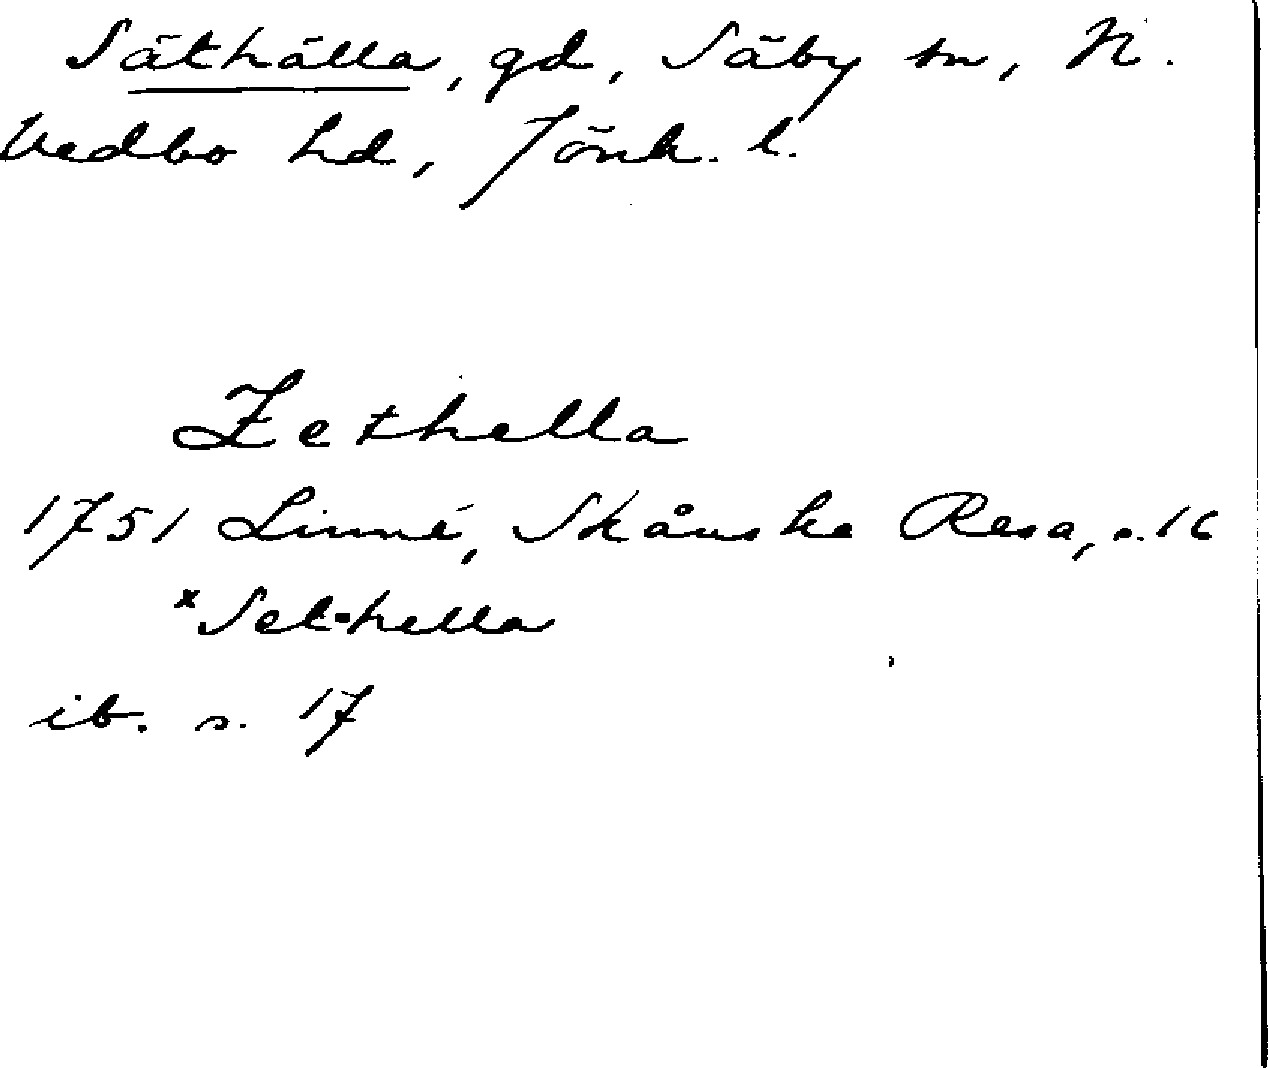 Säthälla, gd, Säby sn, N.
Vedbo hd, Jönk. l.
Zethella
1751 Linné, Skånska Resa, s. 16
*Set-hella
ib. s. 17